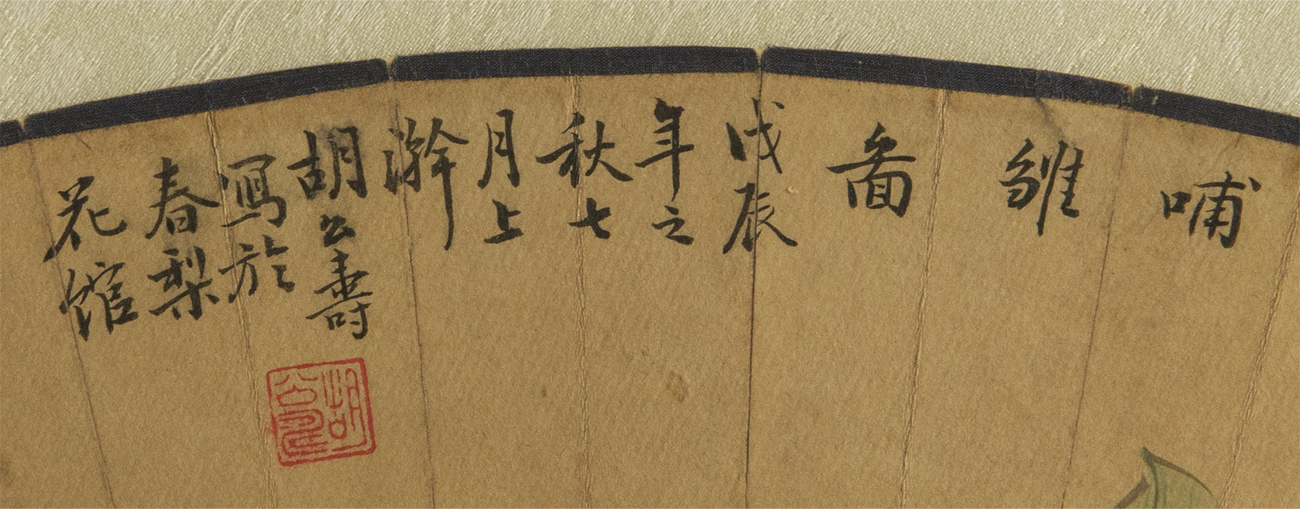 哺
雛
啚
戊辰
年之
秋七
月上
澣
胡公壽
寫於
春梨
花館
胡公